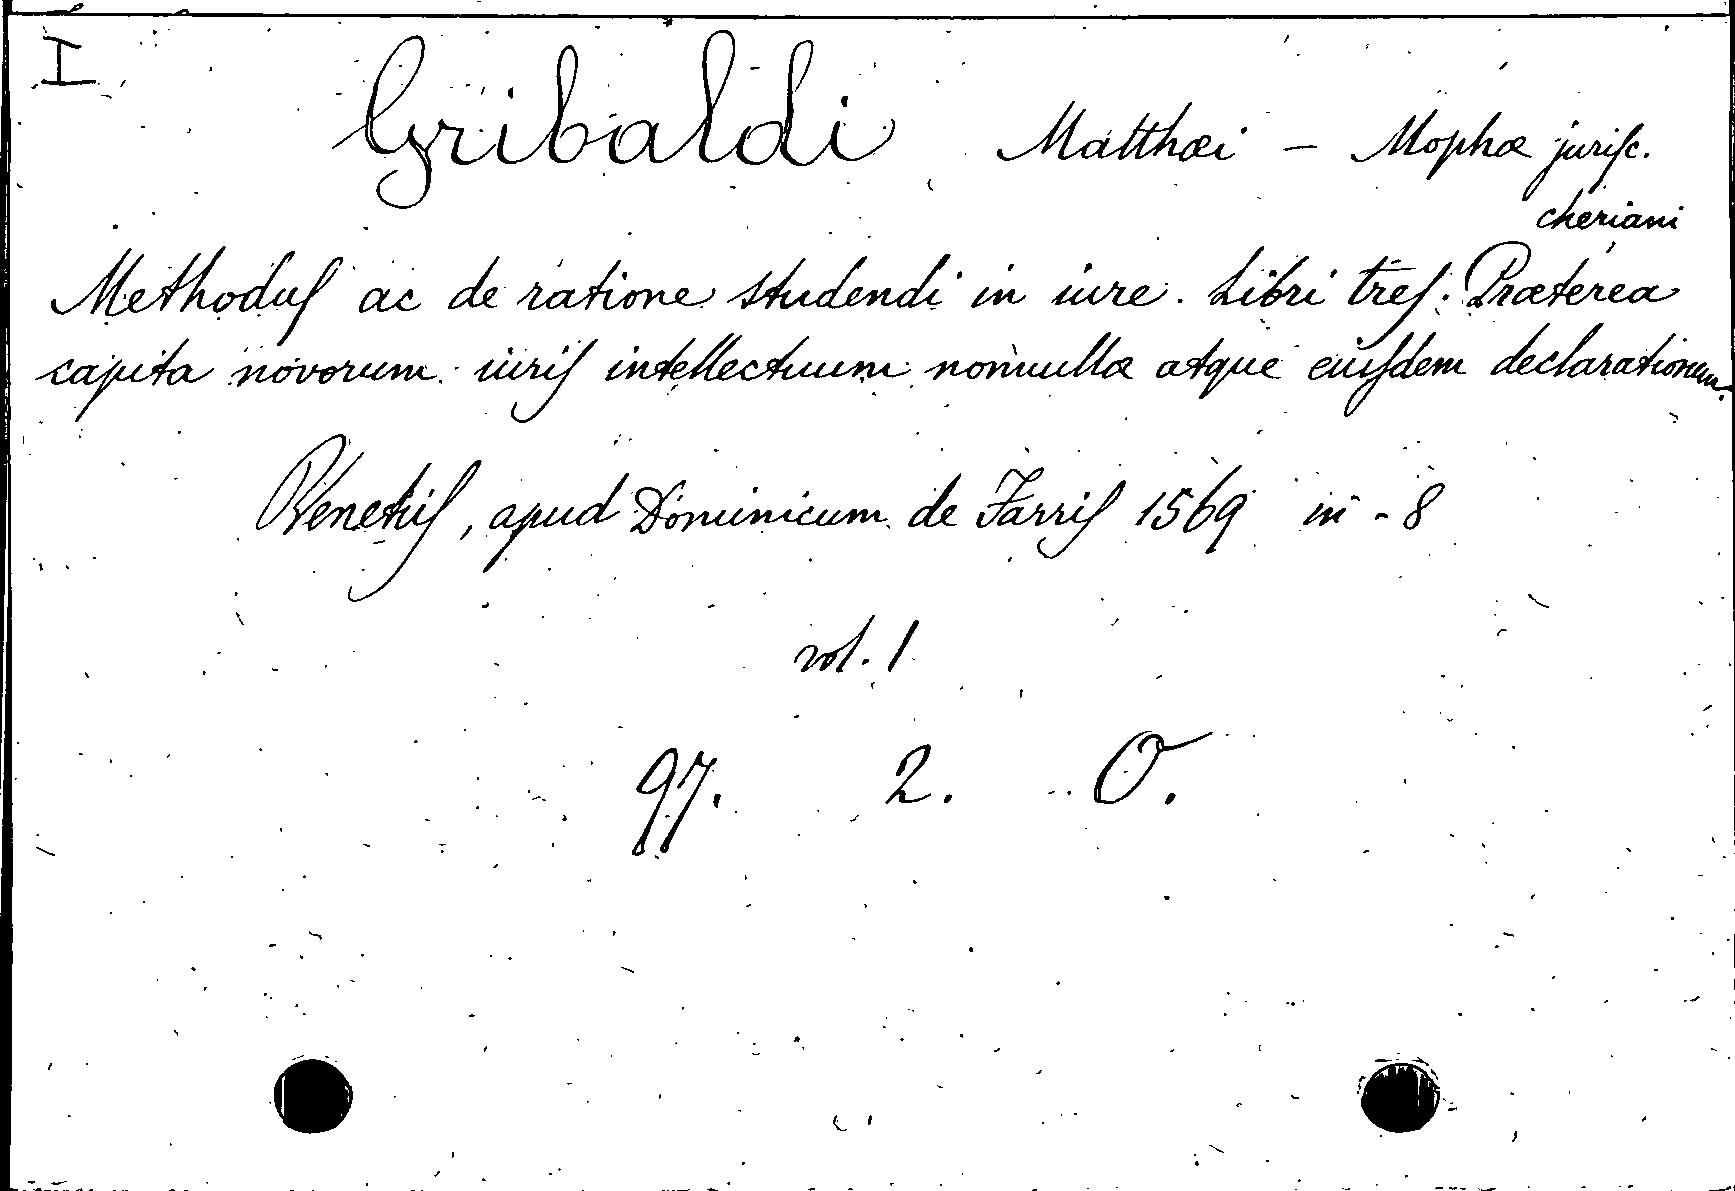 I
Gribaldi Matthæi - Mophæ juriſc.
cheriani
Methoduſ ac de ratione studendi in iure. Libri treſ. Præterea
capita novorum iuriſ intellectuum nonnulla atque eiuſdem declarationum.
Venetiiſ, apud Dominicum de Farriſ 1569 in-8
vol. 1
97. 2. O.